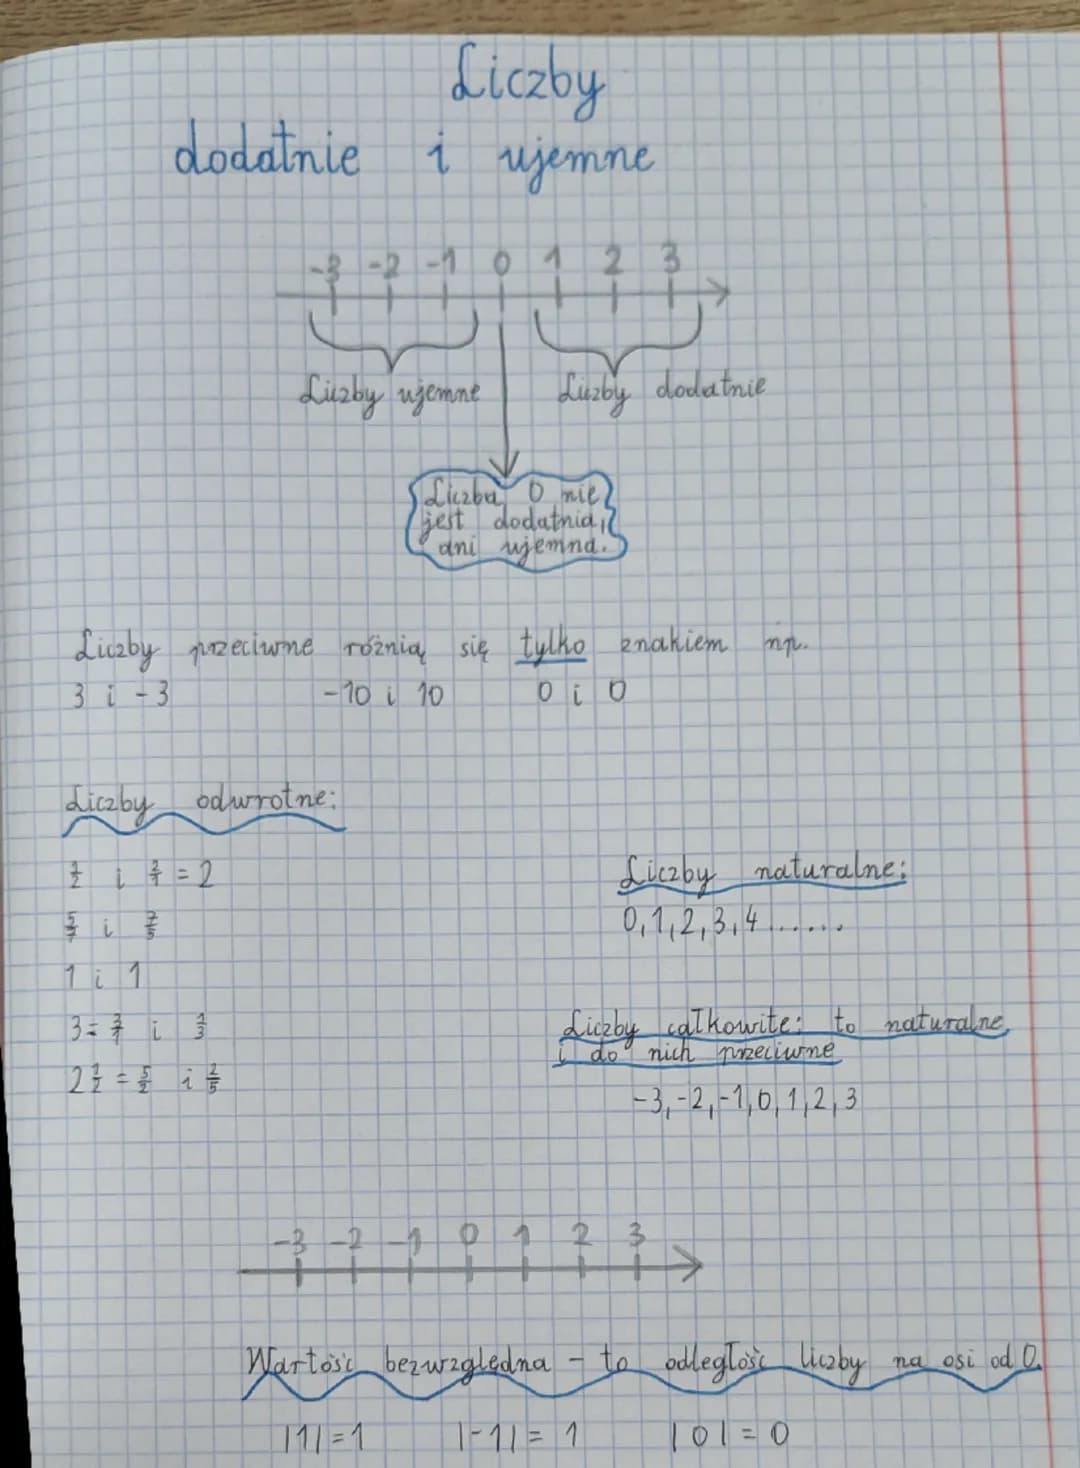 Liczby
dodatnie i ujemne
-3 -2 -1 0 1 2 3
Liczby ujemne Liczby dodatnie
Liczba 0 nie
jest dodatnia,
ani ujemna.
Liczby przeciwne różnią się tylko znakiem np.
3 i -3 -10 i 10 0 i 0
Liczby odwrotne:
1/2 i 2/1 = 2
5/7 i 7/5
1 i 1
3 = 3/1 i 1/3
2 1/2 = 5/2 i 2/5
Liczby naturalne:
0, 1, 2, 3, 4 ......
Liczby całkowite: to naturalne
i do nich przeciwne
-3, -2, -1, 0, 1, 2, 3
-3 -2 -1 0 1 2 3
Wartość bezwzględna - to odległość liczby na osi od 0.
|1| = 1 |-1| = 1 |0| = 0